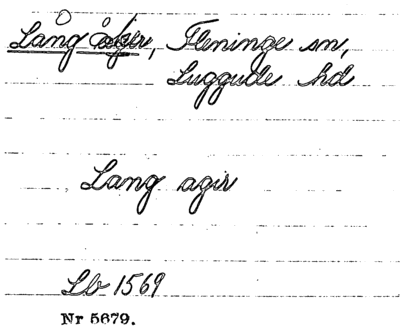 Lång åker, Fleninge sn,
Luggude hd
Lang agir
Lb 1569
Nr 5679.